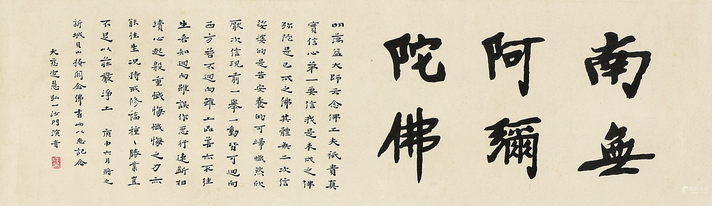 南無
阿彌
陀佛
明蕅益大師云念佛工夫祇貴真
實信心第一要信我是未成之佛
彌陀是已成之佛其體無二次信
娑婆的是苦安養的可歸熾然欣
厭次信現前一舉一動皆可迴向
西方若不迴向雖上品善亦不往
生若知迴向雖誤作惡行速斷相
續心起殷重懺悔懺悔之力亦
能往生況持戒修福種〻勝業豈
不足以莊嚴淨土 庚申六月將之
新城貝山掩關念佛書此以志記念
大慈定慧弘一沙門演音